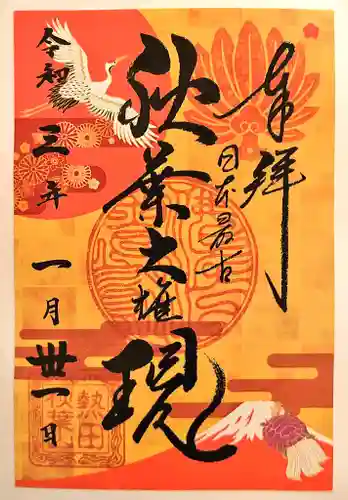 奉拝
日本最古
秋葉大権現
令和三年
一月卅一日
熱田
秋葉